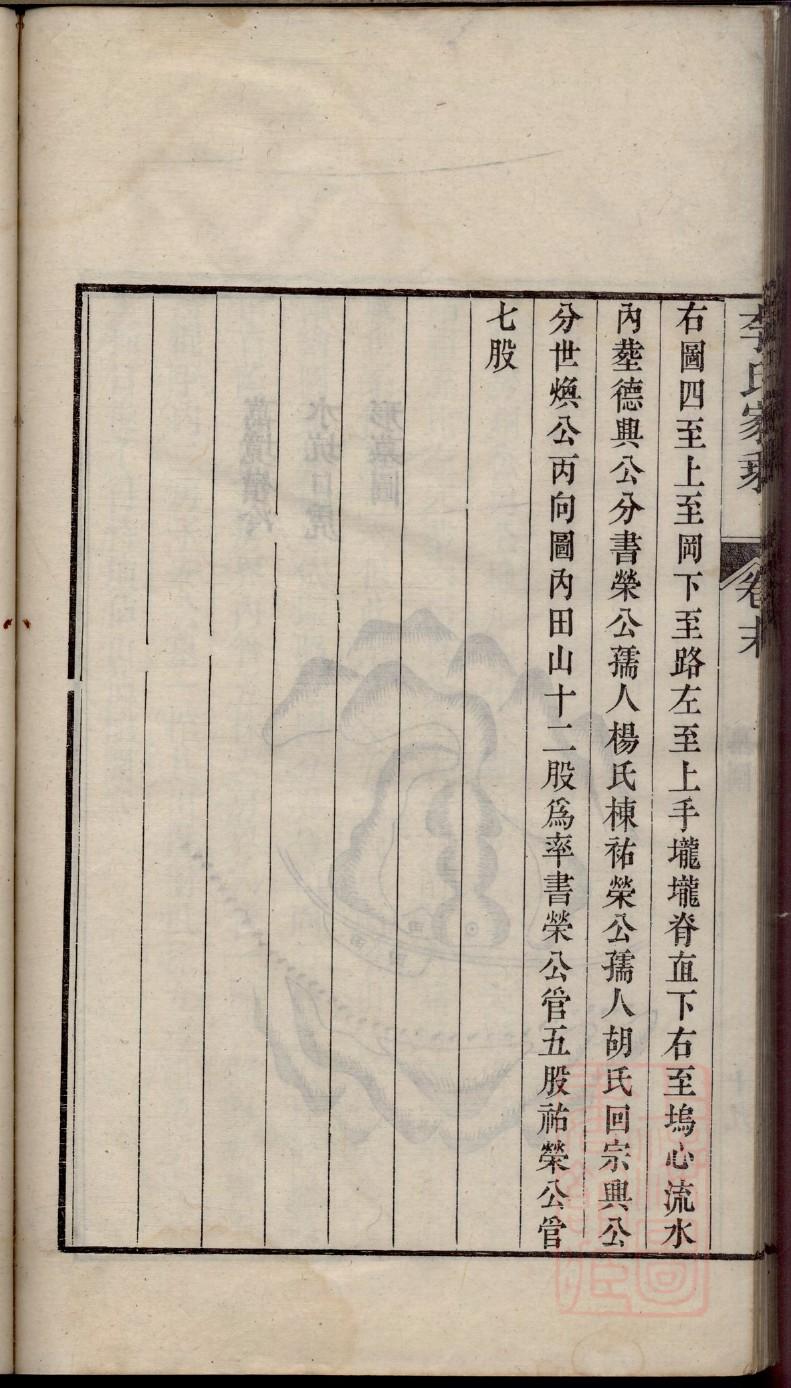 李氏家乘
卷末
右圖四至上至岡下至路左至上手壠壠脊直下右至塢心流水
內塟德興公分書榮公孺人楊氏棟祐榮公孺人胡氏回宗興公
分世煥公丙向圖內田山十二股爲率書榮公管五股祐榮公管
七股